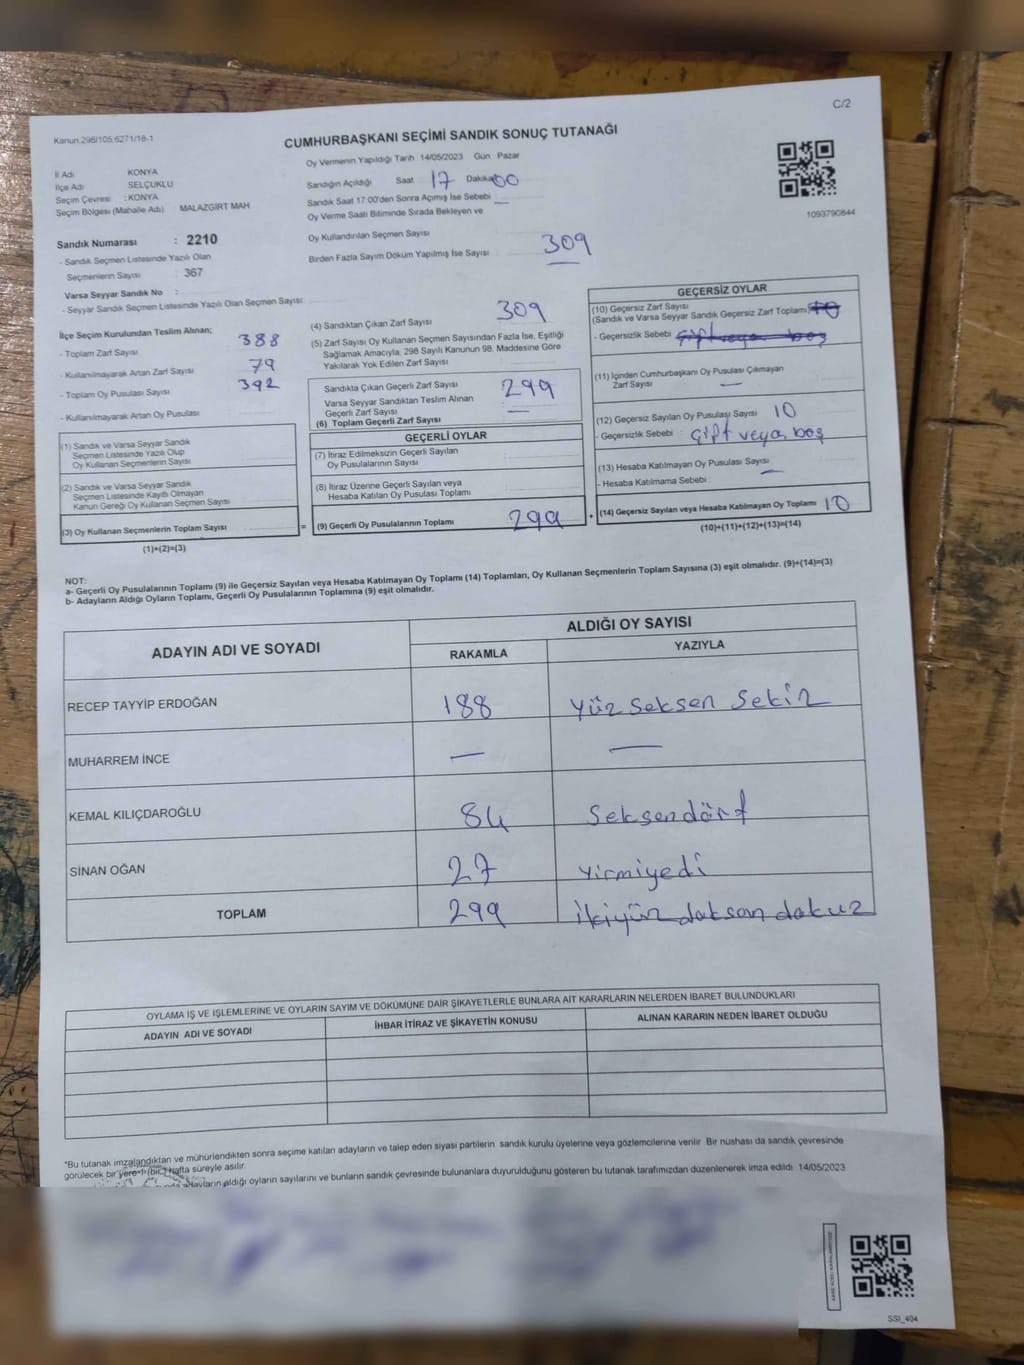 C/2
Kanun.298/105.6271/18-1
CUMHURBAŞKANI SEÇİMİ SANDIK SONUÇ TUTANAĞI
Oy Vermenin Yapıldığı Tarih 14/05/2023 Gün : Pazar
İl Adı KONYA
İlçe Adı SELÇUKLU
Seçim Çevresi : KONYA
Seçim Bölgesi (Mahalle Adı) MALAZGİRT MAH
Sandığın Açıldığı Saat 17 Dakika 00
Sandık Saat 17 00'den Sonra Açımış İse Sebebi —
Oy Verme Saati Bitiminde Sırada Bekleyen ve
Oy Kullandırılan Seçmen Sayısı
Birden Fazla Sayım Döküm Yapılmış İse Sayısı 309
1093790844
Sandık Numarası : 2210
- Sandık Seçmen Listesinde Yazılı Olan
Seçmenlerin Sayısı : 367
Varsa Seyyar Sandık No :
- Seyyar Sandık Seçmen Listesinde Yazılı Olan Seçmen Sayısı:
İlçe Seçim Kurulundan Teslim Alınan;
- Toplam Zarf Sayısı 388
- Kullanılmayarak Artan Zarf Sayısı 79
- Toplam Oy Pusulası Sayısı 392
- Kullanılmayarak Artan Oy Pusulası
(1) Sandık ve Varsa Seyyar Sandık
Seçmen Listesinde Yazılı Olup
Oy Kullanan Seçmenlerin Sayısı
(2) Sandık ve Varsa Seyyar Sandık
Seçmen Listesinde Kayıtlı Olmayan
Kanun Gereği Oy Kullanan Seçmen Sayısı
(3) Oy Kullanan Seçmenlerin Toplam Sayısı =
(1)+(2)=(3)
(4) Sandıktan Çıkan Zarf Sayısı 309
(5) Zarf Sayısı Oy Kullanan Seçmen Sayısından Fazla İse, Eşitliği
Sağlamak Amacıyla; 298 Sayılı Kanunun 98. Maddesine Göre
Yakılarak Yok Edilen Zarf Sayısı
Sandıkta Çıkan Geçerli Zarf Sayısı 299
Varsa Seyyar Sandıktan Teslim Alınan
Geçerli Zarf Sayısı —
(6) Toplam Geçerli Zarf Sayısı
GEÇERLİ OYLAR
(7) İtiraz Edilmeksizin Geçerli Sayılan
Oy Pusulalarının Sayısı
(8) İtiraz Üzerine Geçerli Sayılan veya
Hesaba Katılan Oy Pusulası Toplamı
(9) Geçerli Oy Pusulalarının Toplamı 299 +
GEÇERSİZ OYLAR
(10) Geçersiz Zarf Sayısı
(Sandık ve Varsa Seyyar Sandık Geçersiz Zarf Toplamı) 10
- Geçersizlik Sebebi : Çift veya boş
(11) İçinden Cumhurbaşkanı Oy Pusulası Çıkmayan
Zarf Sayısı —
(12) Geçersiz Sayılan Oy Pusulası Sayısı 10
- Geçersizlik Sebebi : çift veya boş
(13) Hesaba Katılmayan Oy Pusulası Sayısı —
- Hesaba Katılmama Sebebi :
(14) Geçersiz Sayılan veya Hesaba Katılmayan Oy Toplamı 10
(10)+(11)+(12)+(13)=(14)
NOT:
a- Geçerli Oy Pusulalarının Toplamı (9) ile Geçersiz Sayılan veya Hesaba Katılmayan Oy Toplamı (14) Toplamları, Oy Kullanan Seçmenlerin Toplam Sayısına (3) eşit olmalıdır. (9)+(14)=(3)
b- Adayların Aldığı Oyların Toplamı, Geçerli Oy Pusulalarının Toplamına (9) eşit olmalıdır.
ADAYIN ADI VE SOYADI ALDIĞI OY SAYISI
RAKAMLA YAZIYLA
RECEP TAYYİP ERDOĞAN 188 Yüz seksen sekiz
MUHARREM İNCE — —
KEMAL KILIÇDAROĞLU 84 Seksendört
SİNAN OĞAN 27 Yirmiyedi
TOPLAM 299 İkiyüz doksan dokuz
OYLAMA İŞ VE İŞLEMLERİNE VE OYLARIN SAYIM VE DÖKÜMÜNE DAİR ŞİKAYETLERLE BUNLARA AİT KARARLARIN NELERDEN İBARET BULUNDUKLARI
ADAYIN ADI VE SOYADI İHBAR İTİRAZ VE ŞİKAYETİN KONUSU ALINAN KARARIN NEDEN İBARET OLDUĞU
*Bu tutanak imzalandıktan ve mühürlendikten sonra seçime katılan adayların ve talep eden siyasi partilerin sandık kurulu üyelerine veya gözlemcilerine verilir. Bir nüshası da sandık çevresinde
görülecek bir yere 1 (bir) hafta süreyle asılır.
adayların aldığı oyların sayılarını ve bunların sandık çevresinde bulunanlara duyurulduğunu gösteren bu tutanak tarafımızdan düzenlenerek imza edildi. 14/05/2023
SSI_404